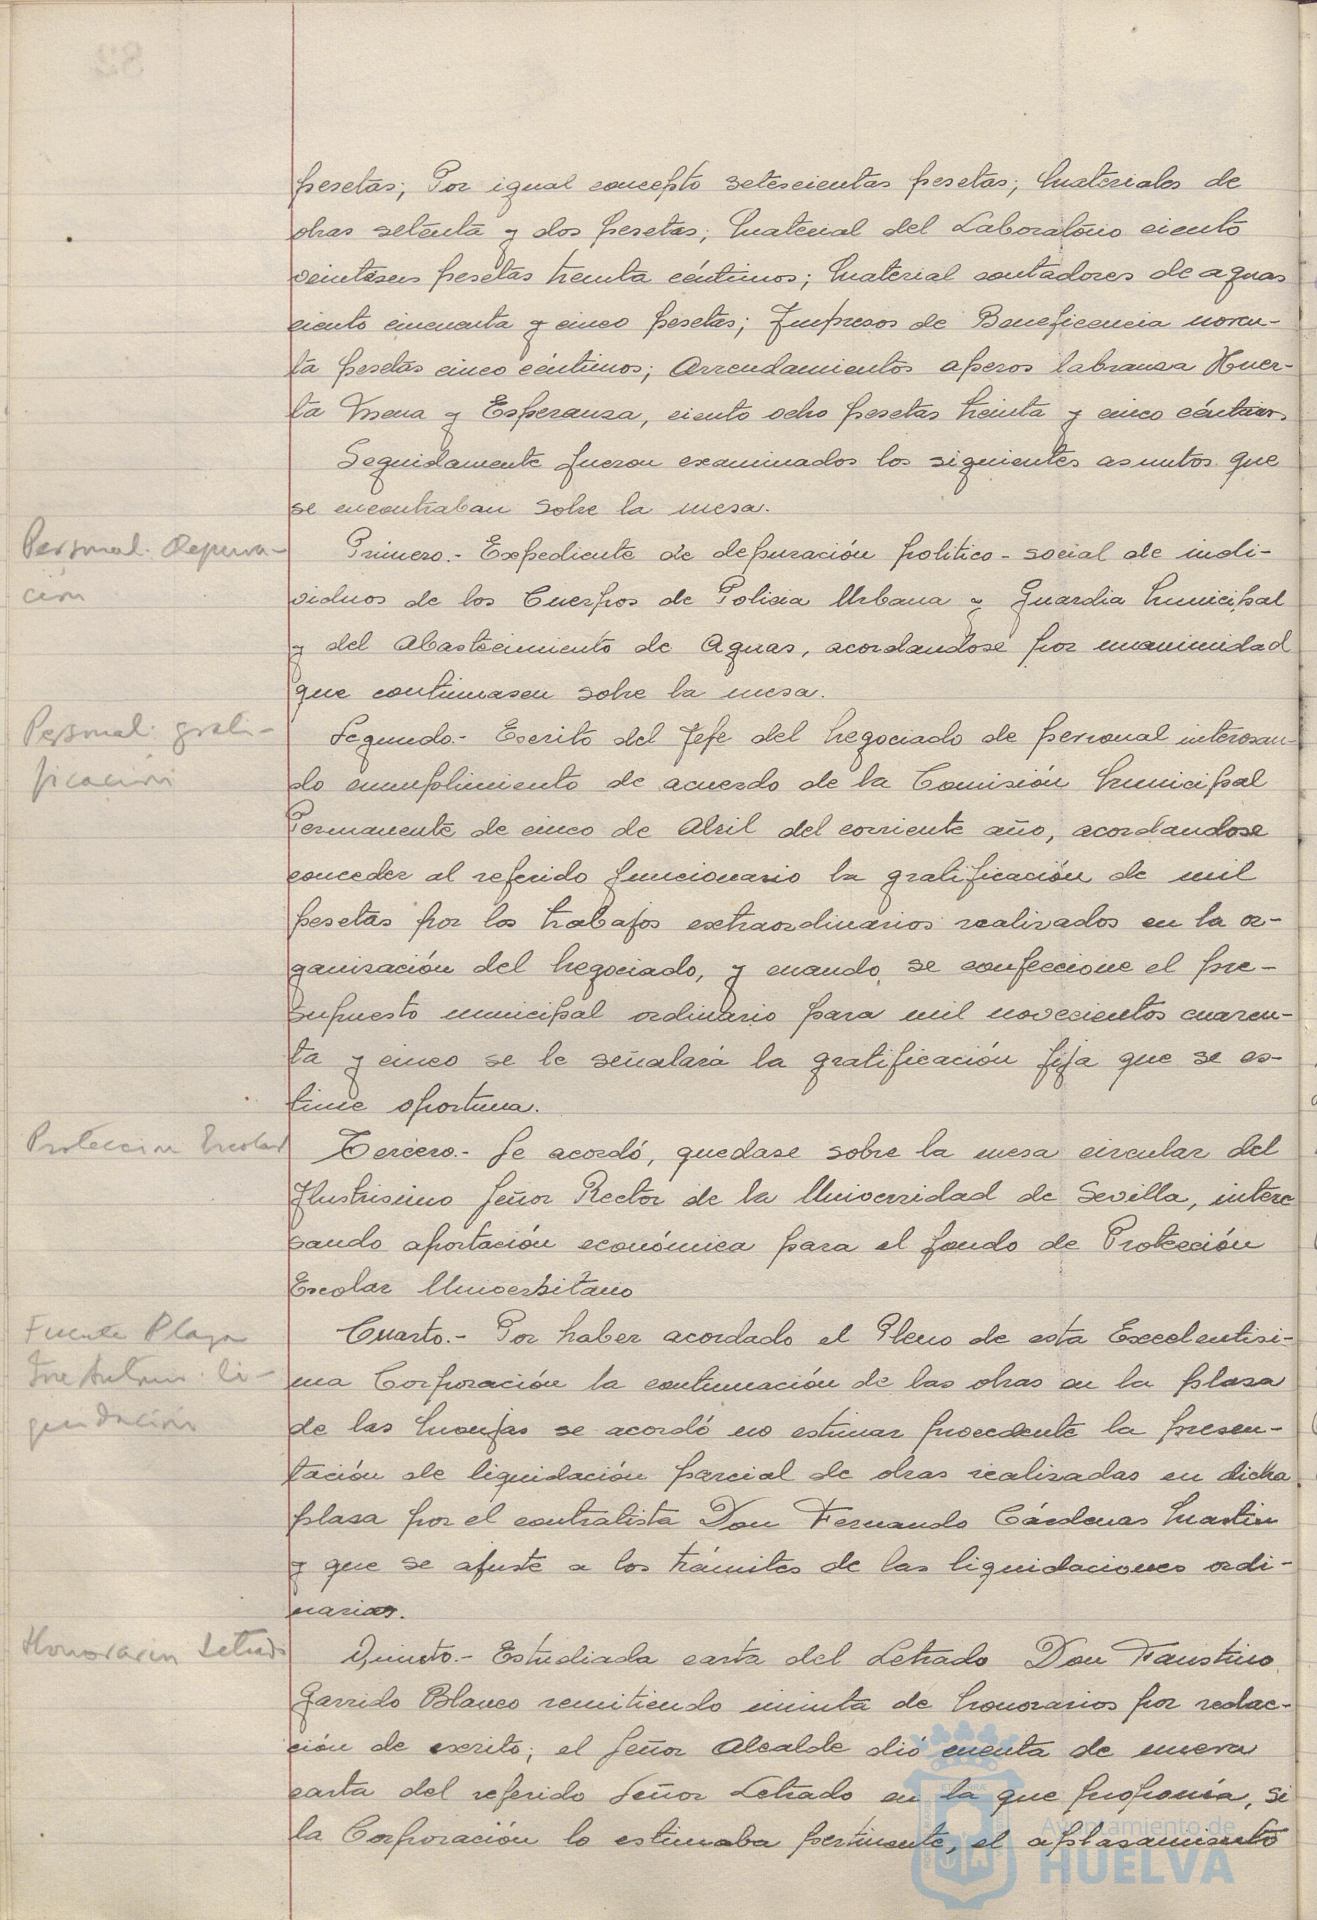 pesetas; Por igual concepto setescientas pesetas; Materiales de
obras setenta y dos pesetas; Material del Laboratorio ciento
veintiseis pesetas treinta céntimos; Material contadores de aguas
ciento cincuenta y cinco pesetas; Impresos de Beneficencia noven-
ta pesetas cinco céntimos; Arrendamientos aperos labranza Huer-
ta Mena y Esperanza, ciento ocho pesetas treinta y cinco céntimos.
Seguidamente fueron examinados los siguientes asuntos que
se encontraban sobre la mesa.
Personal. Depura-
ción
Primero.- Expediente de depuración político-social de indi-
viduos de los Cuerpos de Policia Urbana y Guardia Municipal
y del Abastecimiento de Aguas, acordandose por unanimidad
que continuasen sobre la mesa.
Personal: grati-
ficación
Segundo.- Escrito del Jefe del Negociado de personal interesan-
do cumplimiento de acuerdo de la Comisión Municipal
Permanente de cinco de Abril del corriente año, acordandose
conceder al referido funcionario la gratificación de mil
pesetas por los trabajos extraordinarios realizados en la or-
ganización del Negociado, y cuando se confeccione el pre-
supuesto municipal ordinario para mil novecientos cuaren-
ta y cinco se le señalará la gratificación fija que se es-
time oportuna.
Protección Escolar
Tercero.- Se acordó, quedase sobre la mesa circular del
Ilustrisimo Señor Rector de la Universidad de Sevilla, intere
sando aportación económica para el fondo de Protección
Escolar Universitario
Fuente Plaza
Jose Antonio. li-
quidación
Cuarto.- Por haber acordado el Pleno de esta Excelentisi-
ma Corporación la continuación de las obras en la plaza
de las Monjas se acordó no estimar procedente la presen-
tación de liquidación parcial de obras realizadas en dicha
plaza por el contratista Don Fernando Cárdenas Martin
y que se ajuste a los trámites de las liquidaciones ordi-
narias.
Honorarios Letrado
Quinto.- Estudiada carta del Letrado Don Faustino
Garrido Blanco remitiendo minuta de honorarios por redac-
ción de escrito; el Señor Alcalde dió cuenta de nueva
carta del referido Señor Letrado en la que proponía, si
la Corporación lo estimaba pertinente, el aplazamiento
Ayuntamiento de
HUELVA